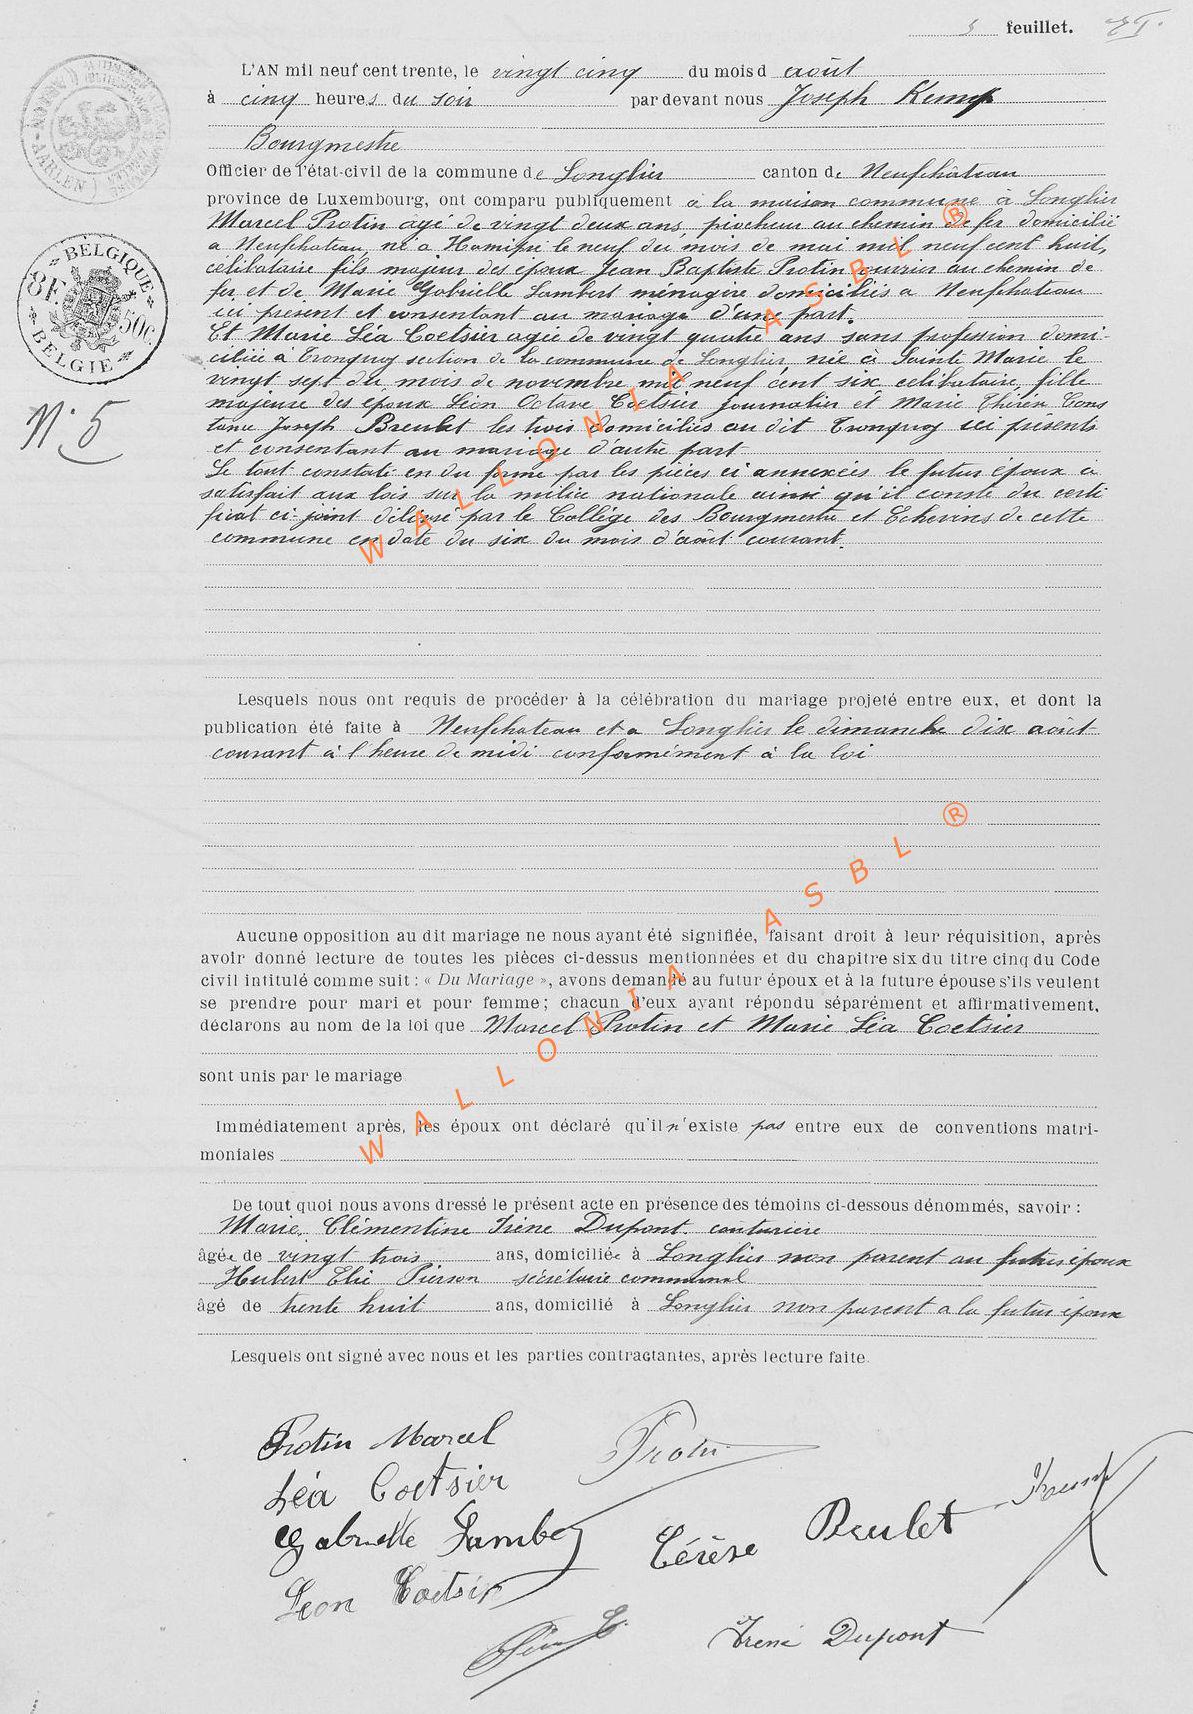 5 feuillet.
L'AN mil neuf cent trente, le vingt cinq du mois d août
à cinq heures du soir par devant nous Joseph Kemp
Bourgmestre
Officier de l'état-civil de la commune de Longlier canton de Neufchateau
province de Luxembourg, ont comparu publiquement à la maison commune à Longlier
Marcel Protin agé de vingt deux ans, piocheur au chemin de fer domicilié
a Neufchateau, né a Hamipré le neuf du mois de mai mil neuf cent huit,
célibataire fils majeur des époux Jean Baptiste Protin ouvrier au chemin de
fer et de Marie Gabrielle Lambert ménagère domiciliés a Neufchateau
ici present et consentant au mariage d'une part.
Et Marie Léa Coetsier agée de vingt quatre ans sans profession domi-
ciliée à Tronquoy section de la commune de Longlier, née à Sainte Marie le
vingt sept du mois de novembre mil neuf cent six celibataire, fille
majeure des époux Léon Octave Coetsier journalier et Marie Thérèse Cons
tance Joseph Breulet les trois domiciliés au dit Tronquoy ici présents
et consentant au mariage d'autre part
Le tout constaté en du forme par les pièces ci annexées le futur époux a
satisfait aux lois sur la milice nationale ainsi qu'il conste du certi
ficat ci-joint délivré par le Collège des Bourgmestre et Echevins de cette
commune en date du six du mois d'août courant.
BELGIQUE
8F. 50c.
BELGIE
AARLEN
N° 5
Lesquels nous ont requis de procéder à la célébration du mariage projeté entre eux, et dont la
publication été faite à Neufchateau et a Longlier le dimanche dix août
courant à l'heure de midi conformément à la loi
Aucune opposition au dit mariage ne nous ayant été signifiée, faisant droit à leur réquisition, après
avoir donné lecture de toutes les pièces ci-dessus mentionnées et du chapitre six du titre cinq du Code
civil intitulé comme suit : « Du Mariage », avons demandé au futur époux et à la future épouse s'ils veulent
se prendre pour mari et pour femme ; chacun d'eux ayant répondu séparément et affirmativement,
déclarons au nom de la loi que Marcel Protin et Marie Léa Coetsier
sont unis par le mariage
Immédiatement après, les époux ont déclaré qu'il n'existe pas entre eux de conventions matri-
moniales
De tout quoi nous avons dressé le présent acte en présence des témoins ci-dessous dénommés, savoir :
Marie, Clémentine Irène Dupont, couturière
âgée de vingt trois ans, domiciliée à Longlier non parent au futur époux
Hubert Elie Pierson sécrétaire communal
âgé de trente huit ans, domicilié à Longlier non parent a la futur époux
Lesquels ont signé avec nous et les parties contractantes, après lecture faite.
Protin Marcel Protin
Léa Coetsier
Gabrielle Lambert Térèse Breulet Kemp
Leon Coetsier
Irène Dupont
WALLONIA ASBL ®
WALLONIA ASBL ®